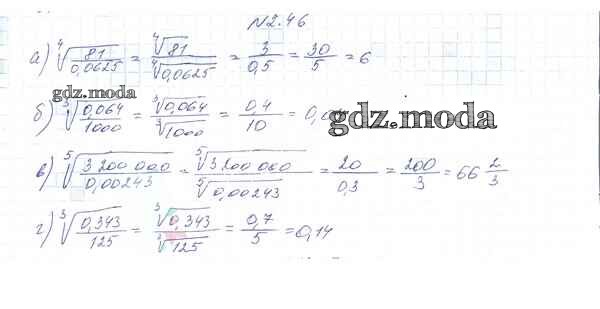 N2.46
а) ∜(81/0,0625) = ∜81/∜0,0625 = 3/0,5 = 30/5 = 6
gdz.moda
б) ∛(0,064/1000) = ∛0,064/∛1000 = 0,4/10 = 0,
gdz.moda
в) ⁵√(3 200 000/0,00243) = ⁵√3 200 000/⁵√0,00243 = 20/0,3 = 200/3 = 66 2/3
г) ∛(0,343/125) = ∛0,343/∛125 = 0,7/5 = 0,14